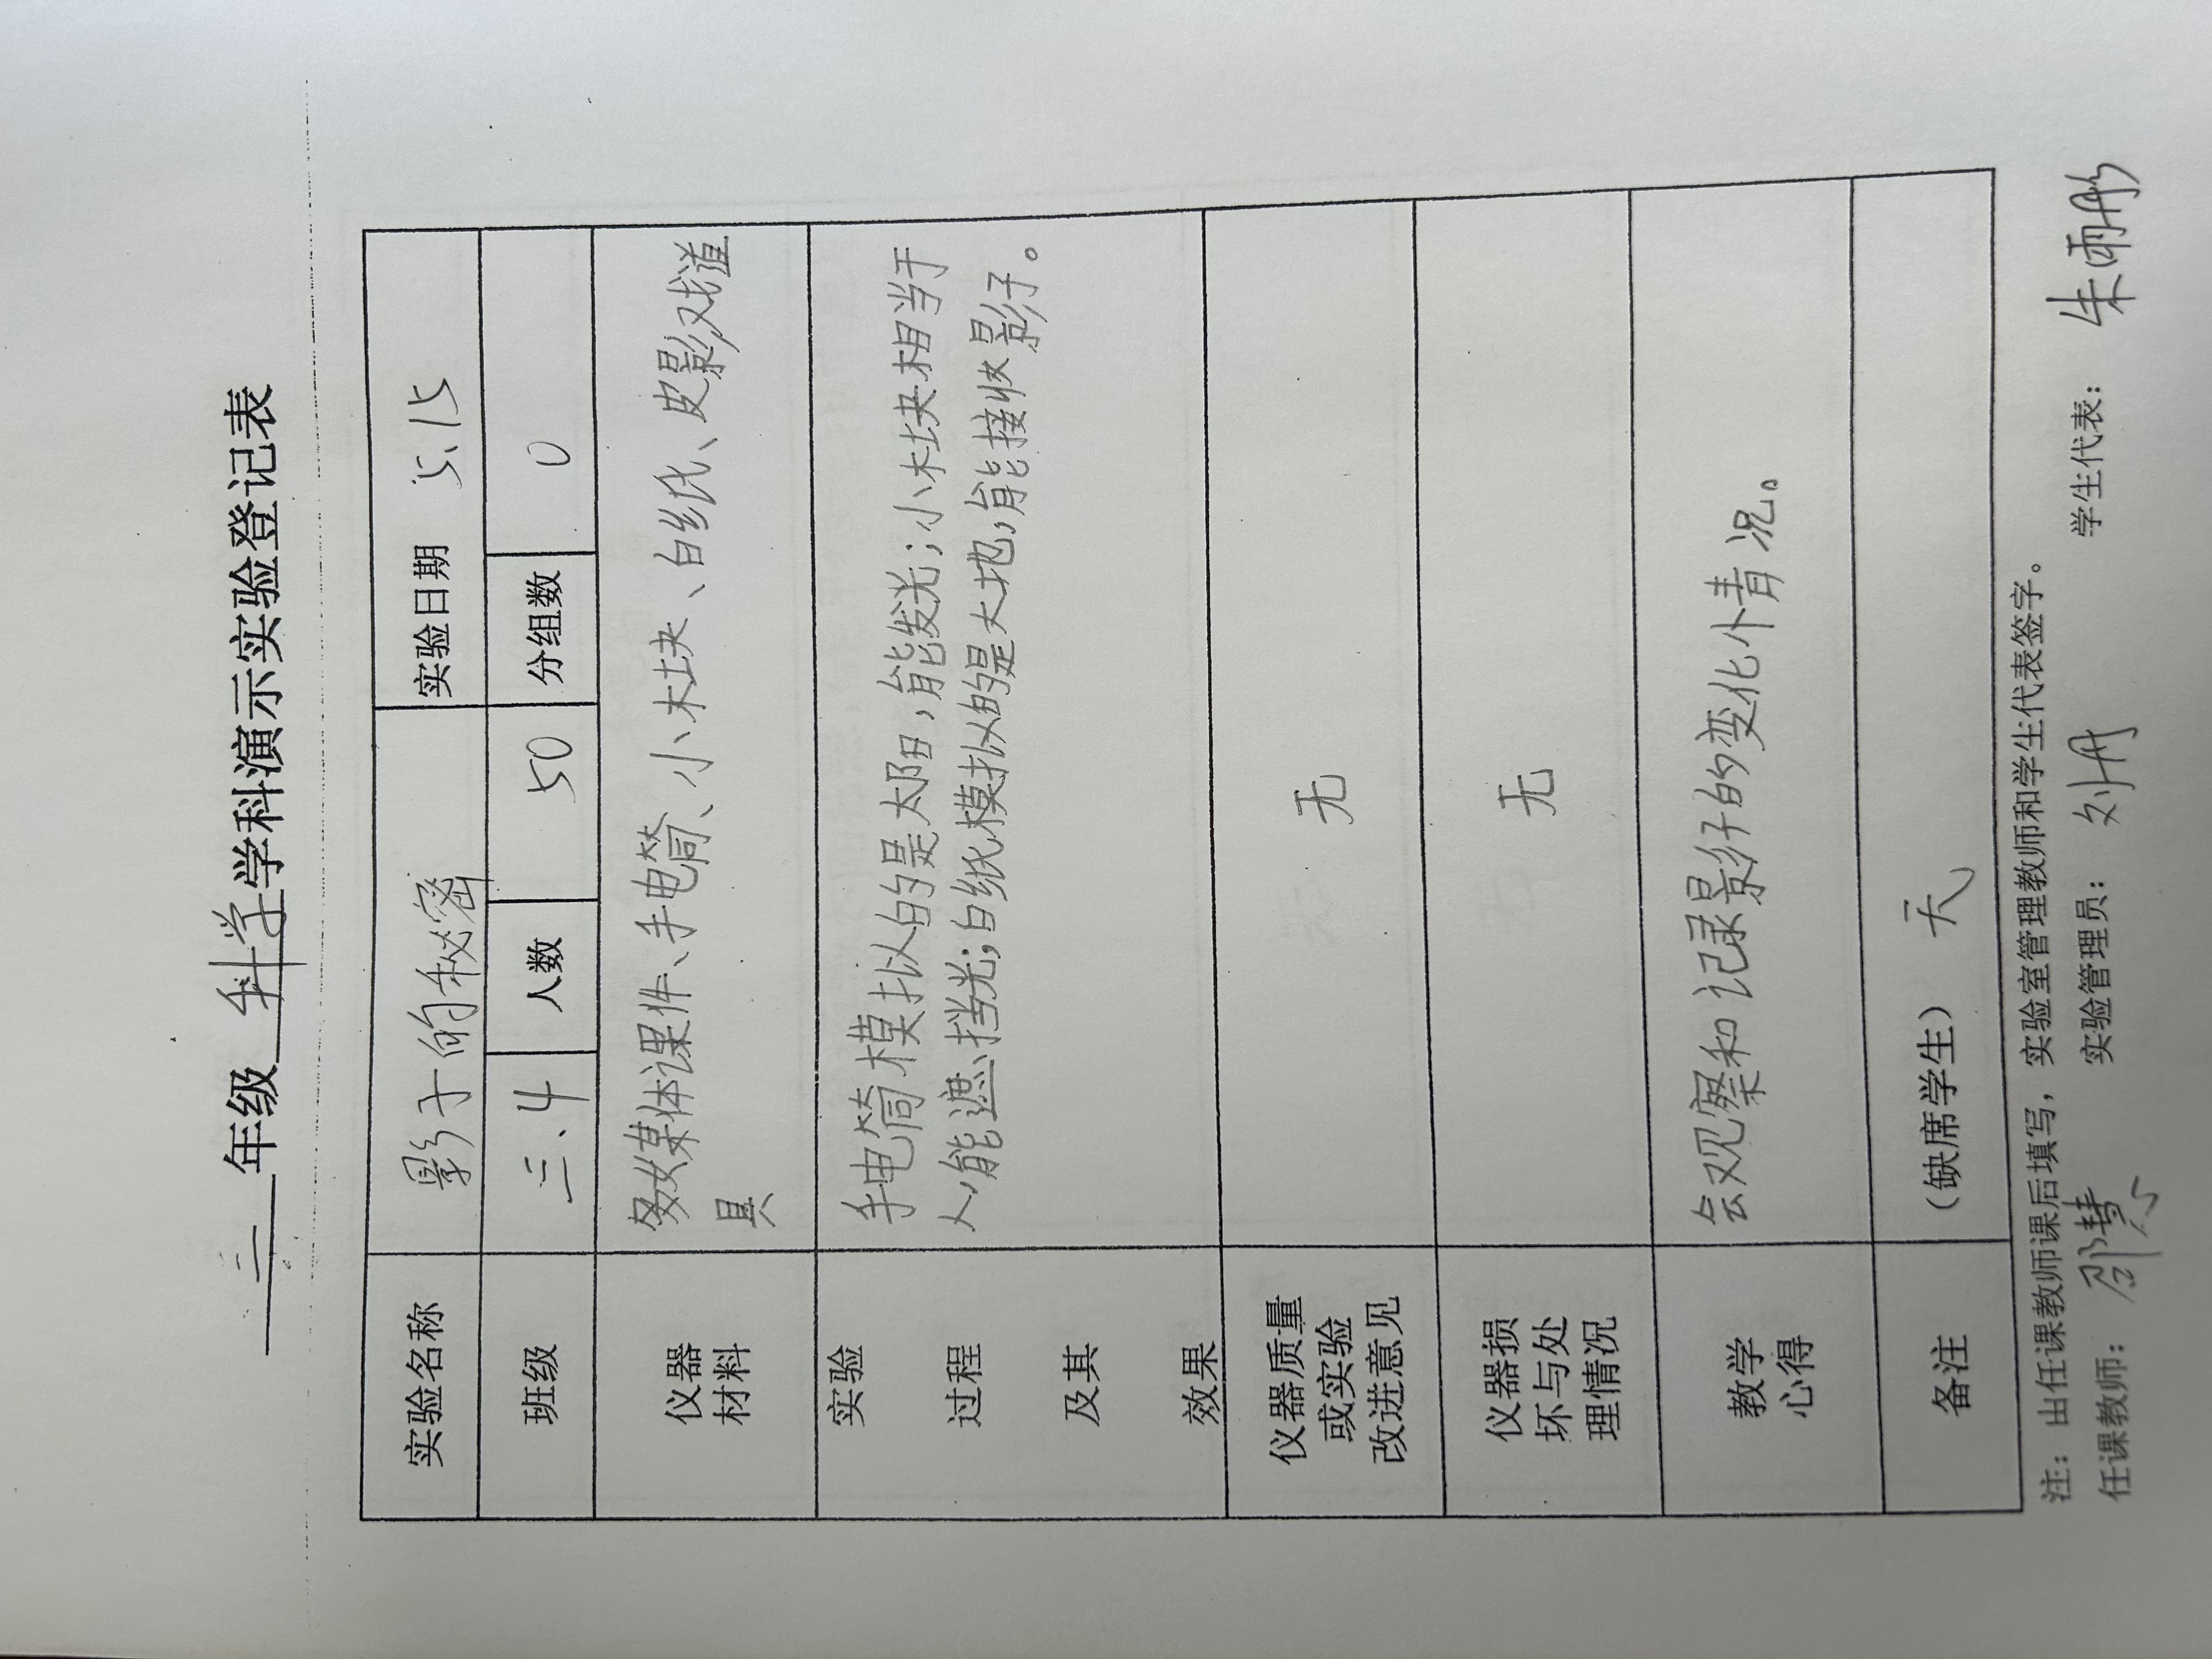 三 年级 科学 学科演示实验登记表
实验名称 影子的秘密 实验日期 5.15
班级 三.4 人数 50 分组数 0
仪器
材料
多媒体课件、手电筒、小木块、白纸、皮影戏道
具
实验
过程
及其
效果
手电筒模拟的是太阳,能发光;小木块相当于
人,能遮挡光;白纸模拟的是大地,能接收影子。
仪器质量
或实验
改进意见
无
仪器损
坏与处
理情况
无
教学
心得
会观察和记录影子的变化情况。
备注 (缺席学生) 无
注:由任课教师课后填写,实验室管理教师和学生代表签字。
任课教师: 邵慧 实验管理员: 刘丹 学生代表: 朱雨彤